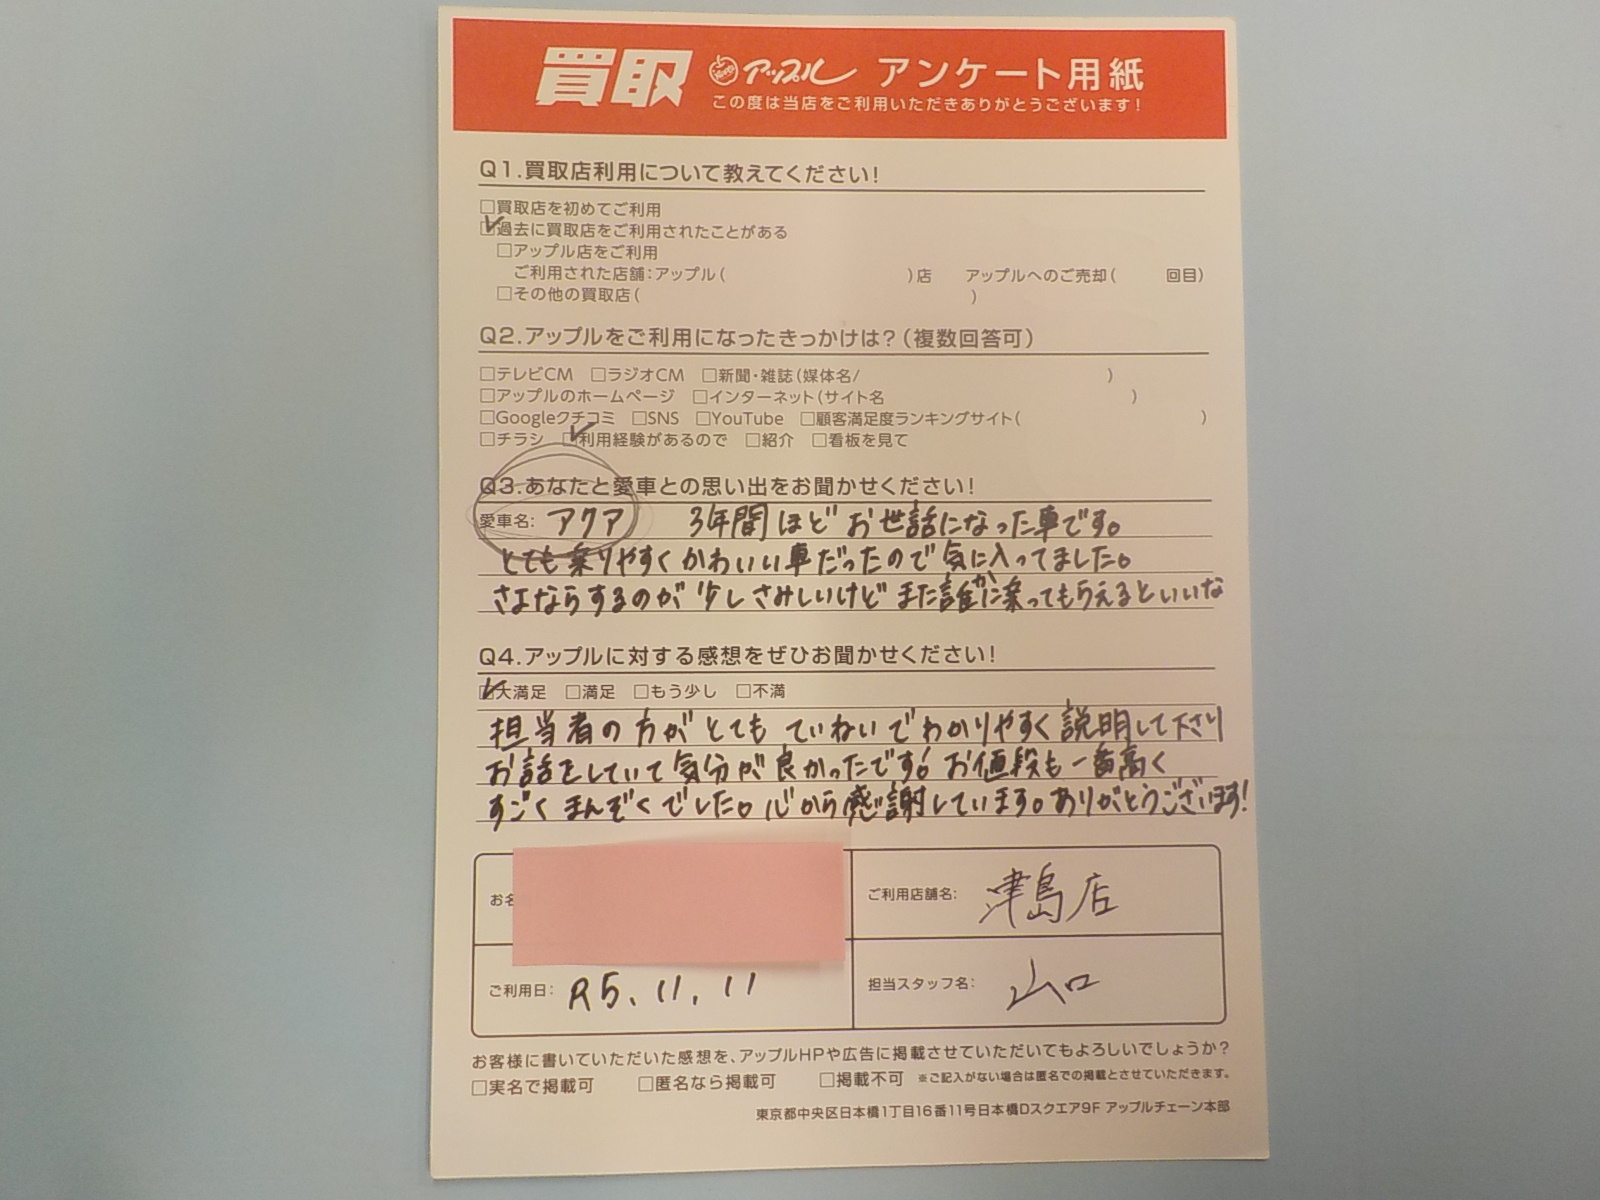 買取 アップル アンケート用紙
この度は当店をご利用いただきありがとうございます!
Q1.買取店利用について教えてください!
□買取店を初めてご利用
☑過去に買取店をご利用されたことがある
□アップル店をご利用
ご利用された店舗:アップル( )店 アップルへのご売却( 回目)
□その他の買取店( )
Q2.アップルをご利用になったきっかけは?(複数回答可)
□テレビCM □ラジオCM □新聞・雑誌(媒体名/ )
□アップルのホームページ □インターネット(サイト名 )
□Googleクチコミ □SNS □YouTube □顧客満足度ランキングサイト( )
□チラシ ☑利用経験があるので □紹介 □看板を見て
Q3.あなたと愛車との思い出をお聞かせください!
愛車名: アクア 3年間ほどお世話になった車です。
とても乗りやすくかわいい車だったので気に入ってました。
さよならするのが少しさみしいけどまた誰かに乗ってもらえるといいな
Q4.アップルに対する感想をぜひお聞かせください!
☑大満足 □満足 □もう少し □不満
担当者の方がとてもていねいでわかりやすく説明して下さり
お話をしていて気分が良かったです!お値段も一番高く
すごくまんぞくでした。心から感謝しています。ありがとうございます!
お名
ご利用店舗名: 津島店
ご利用日: R5.11.11
担当スタッフ名: 山口
お客様に書いていただいた感想を、アップルHPや広告に掲載させていただいてもよろしいでしょうか?
□実名で掲載可 □匿名なら掲載可 □掲載不可 ※ご記入がない場合は匿名での掲載とさせていただきます。
東京都中央区日本橋1丁目16番11号日本橋Dスクエア9F アップルチェーン本部